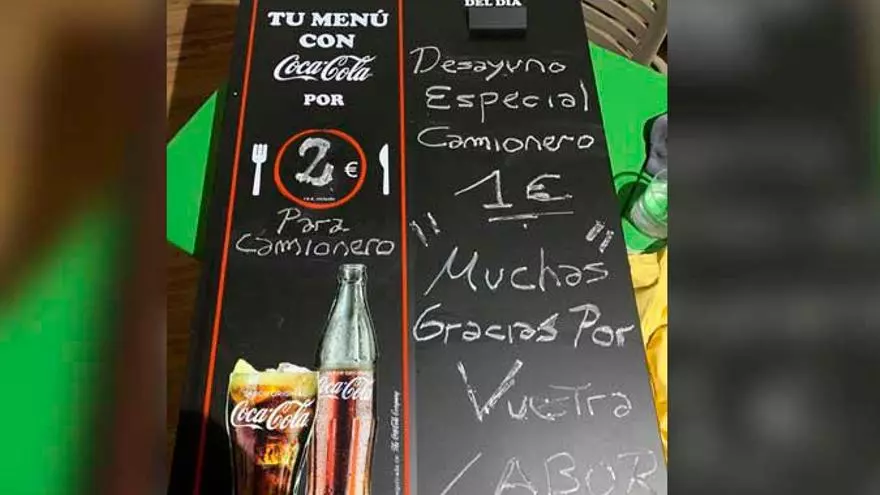 TU MENÚ
CON
Coca-Cola
POR
2 €
I.V.A. incluido
Para
Camionero
SABOR ORIGINAL
Coca-Cola
Coca-Cola
DEL DIA
Desayuno
Especial
Camionero
1 €
"Muchas"
Gracias Por
Vuetra
LABOR